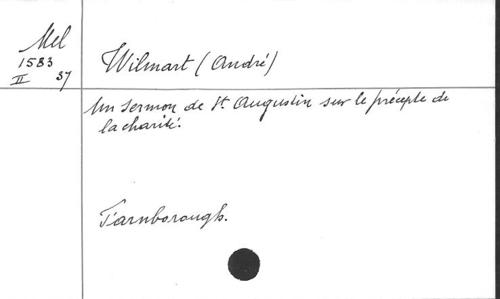 Mel
1583
II 37
Wilmart (André)
Un sermon de St. Augustin sur le précepte de
la charité.
Farnborough.